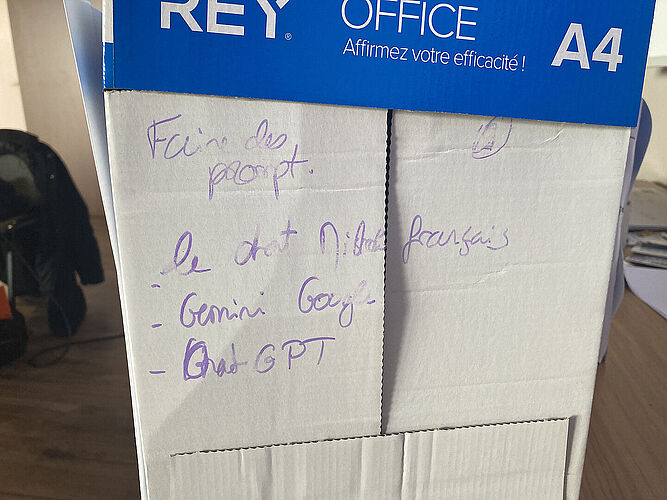 REY®
OFFICE
Affirmez votre efficacité !
A4
Faire des
prompt.
- le chat Mistral français
- Gemini Google
- Chat GPT